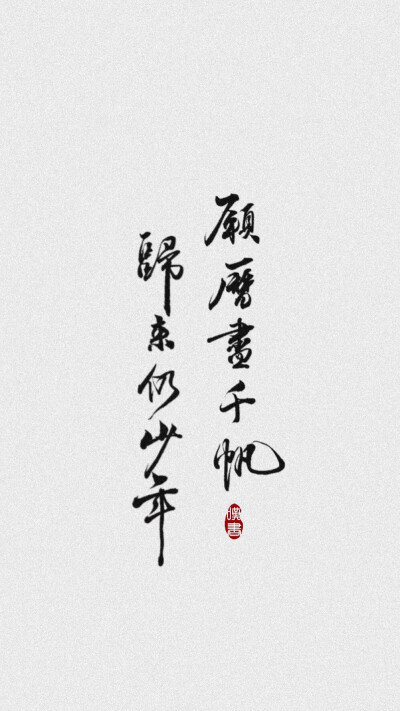 願曆盡千帆
歸来仍少年